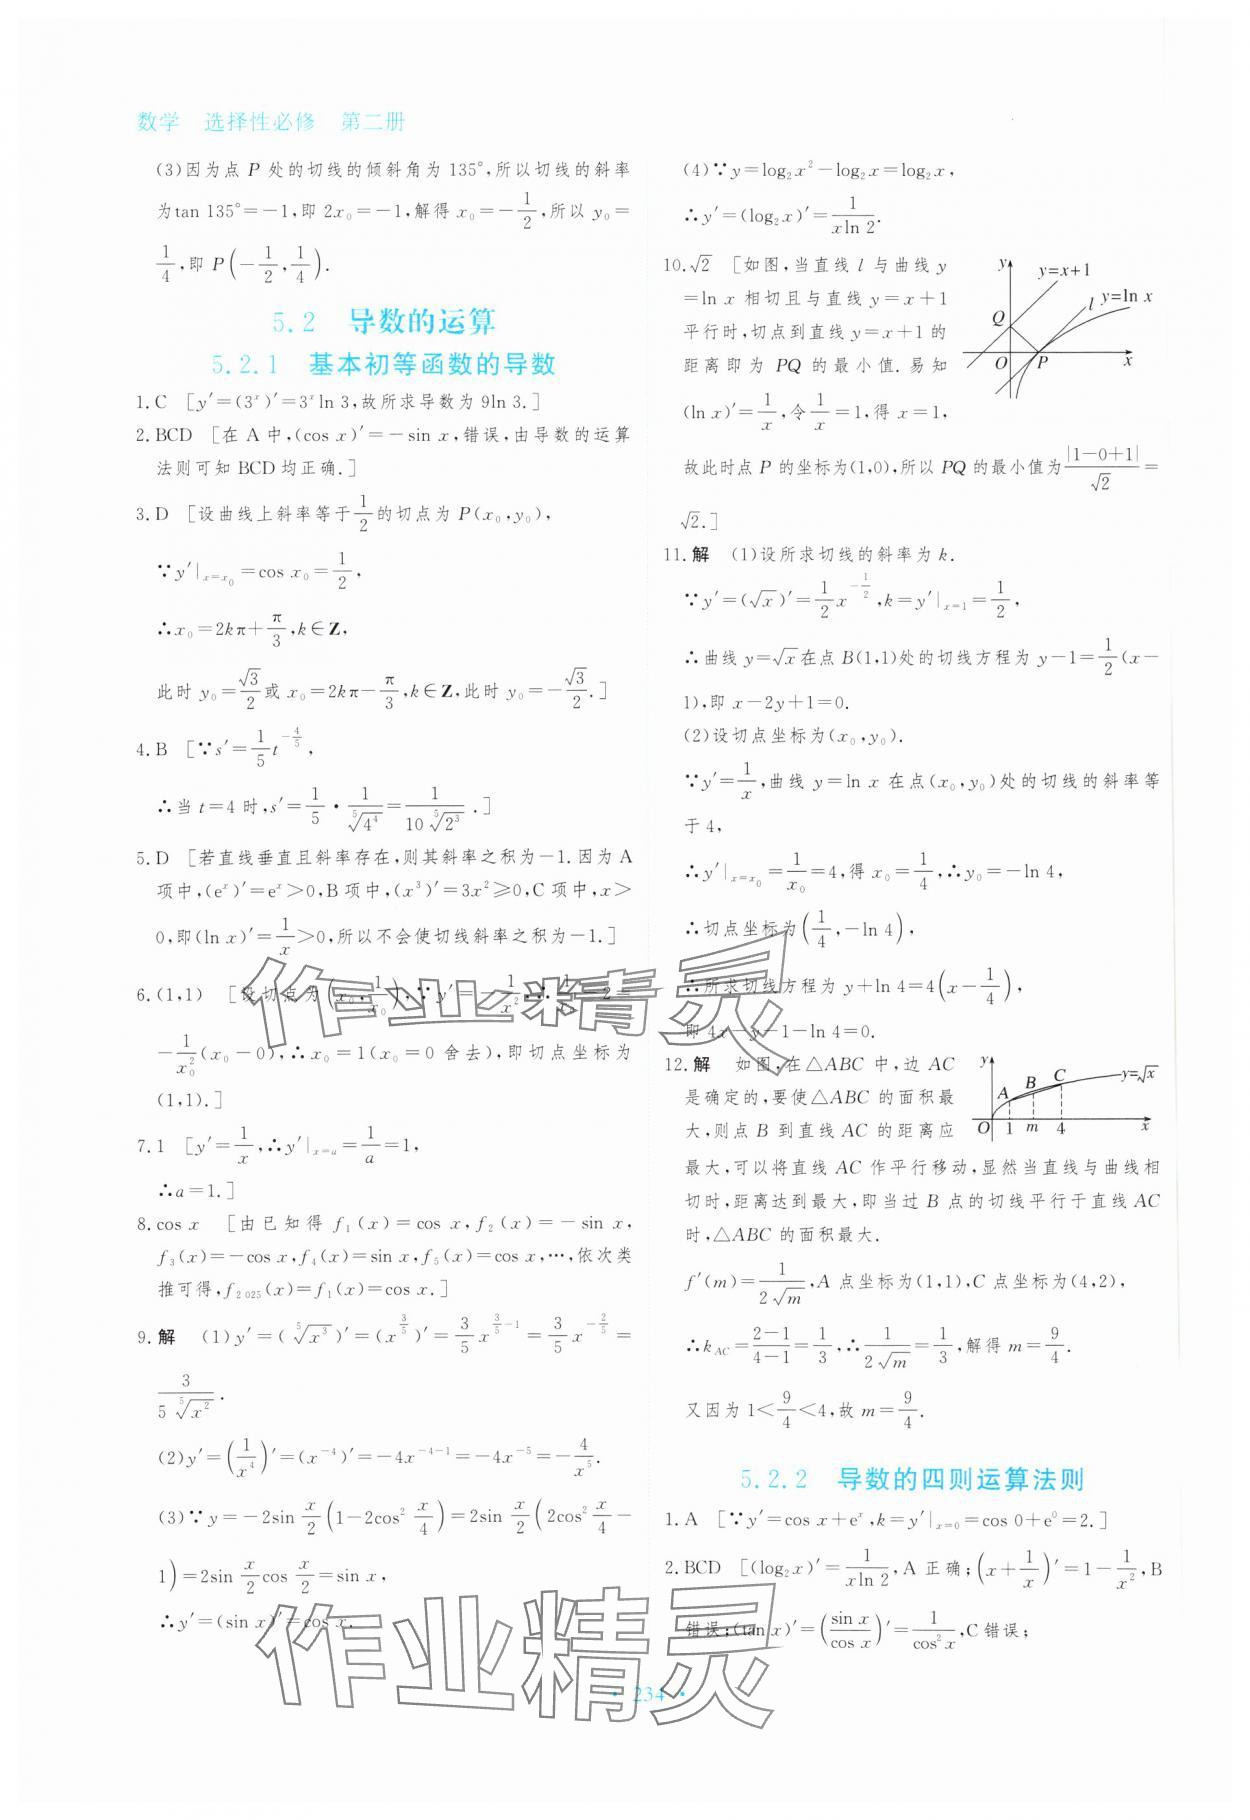 数学 选择性必修 第二册
(3)因为点 P 处的切线的倾斜角为 135°,所以切线的斜率
为tan 135°=-1,即 2x₀=-1,解得 x₀=-1/2,所以 y₀=
1/4,即 P(-1/2,1/4).
5.2 导数的运算
5.2.1 基本初等函数的导数
1.C [y′=(3ˣ)′=3ˣln 3,故所求导数为 9ln 3.]
2.BCD [在 A 中,(cos x)′=-sin x,错误,由导数的运算
法则可知 BCD 均正确.]
3.D [设曲线上斜率等于1/2的切点为 P(x₀,y₀),
∵y′|ₓ₌ₓ₀=cos x₀=1/2,
∴x₀=2kπ+π/3,k∈Z,
此时 y₀=√3/2或 x₀=2kπ-π/3,k∈Z,此时 y₀=-√3/2.]
4.B [∵s′=1/5 t^(-4/5),
∴当 t=4 时,s′=1/5·1/⁵√(4⁴)=1/(10 ⁵√(2³)).]
5.D [若直线垂直且斜率存在,则其斜率之积为-1.因为 A
项中,(eˣ)′=eˣ>0,B 项中,(x³)′=3x²≥0,C 项中,x>
0,即(ln x)′=1/x>0,所以不会使切线斜率之积为-1.]
6.(1,1) [设切点为(x₀,1/x₀),∵y′=-1/x²,∴
-1/x₀²(x₀-0),∴x₀=1(x₀=0 舍去),即切点坐标为
(1,1).]
7.1 [y′=1/x,∴y′|ₓ₌ₐ=1/a=1,
∴a=1.]
8.cos x [由已知得 f₁(x)=cos x,f₂(x)=-sin x,
f₃(x)=-cos x,f₄(x)=sin x,f₅(x)=cos x,…,依次类
推可得,f₂ ₀₂₅(x)=f₁(x)=cos x.]
9.解 (1)y′=(⁵√(x³))′=(x^(3/5))′=3/5 x^(3/5-1)=3/5 x^(-2/5)=
3/(5 ⁵√(x²)).
(2)y′=(1/x⁴)′=(x⁻⁴)′=-4x⁻⁴⁻¹=-4x⁻⁵=-4/x⁵.
(3)∵y=-2sin x/2(1-2cos² x/4)=2sin x/2(2cos² x/4-
1)=2sin x/2 cos x/2=sin x,
∴y′=(sin x)′=cos x.
(4)∵y=log₂x²-log₂x=log₂x,
∴y′=(log₂x)′=1/(xln 2).
10.√2 [如图,当直线 l 与曲线 y
=ln x 相切且与直线 y=x+1
平行时,切点到直线 y=x+1 的
距离即为 PQ 的最小值.易知
(ln x)′=1/x,令1/x=1,得 x=1,
y y=x+1
l y=ln x
Q
O P x
故此时点 P 的坐标为(1,0),所以 PQ 的最小值为|1-0+1|/√2=
√2.]
11.解 (1)设所求切线的斜率为 k.
∵y′=(√x)′=1/2 x^(-1/2),k=y′|ₓ₌₁=1/2,
∴曲线 y=√x在点 B(1,1)处的切线方程为 y-1=1/2(x-
1),即 x-2y+1=0.
(2)设切点坐标为(x₀,y₀).
∵y′=1/x,曲线 y=ln x 在点(x₀,y₀)处的切线的斜率等
于 4,
∴y′|ₓ₌ₓ₀=1/x₀=4,得 x₀=1/4,∴y₀=-ln 4,
∴切点坐标为(1/4,-ln 4),
∴所求切线方程为 y+ln 4=4(x-1/4),
即 4x-y-1-ln 4=0.
12.解 如图,在△ABC 中,边 AC
是确定的,要使△ABC 的面积最
大,则点 B 到直线 AC 的距离应
y A B C y=√x
O 1 m 4 x
最大,可以将直线 AC 作平行移动,显然当直线与曲线相
切时,距离达到最大,即当过 B 点的切线平行于直线 AC
时,△ABC 的面积最大.
f′(m)=1/(2√m),A 点坐标为(1,1),C 点坐标为(4,2),
∴k_AC=(2-1)/(4-1)=1/3,∴1/(2√m)=1/3,解得 m=9/4.
又因为 1<9/4<4,故 m=9/4.
5.2.2 导数的四则运算法则
1.A [∵y′=cos x+eˣ,k=y′|ₓ₌₀=cos 0+e⁰=2.]
2.BCD [(log₂x)′=1/(xln 2),A 正确;(x+1/x)′=1-1/x²,B
错误;(tan x)′=(sin x/cos x)′=1/cos²x,C 错误;
·234·
作业精灵
作业精灵